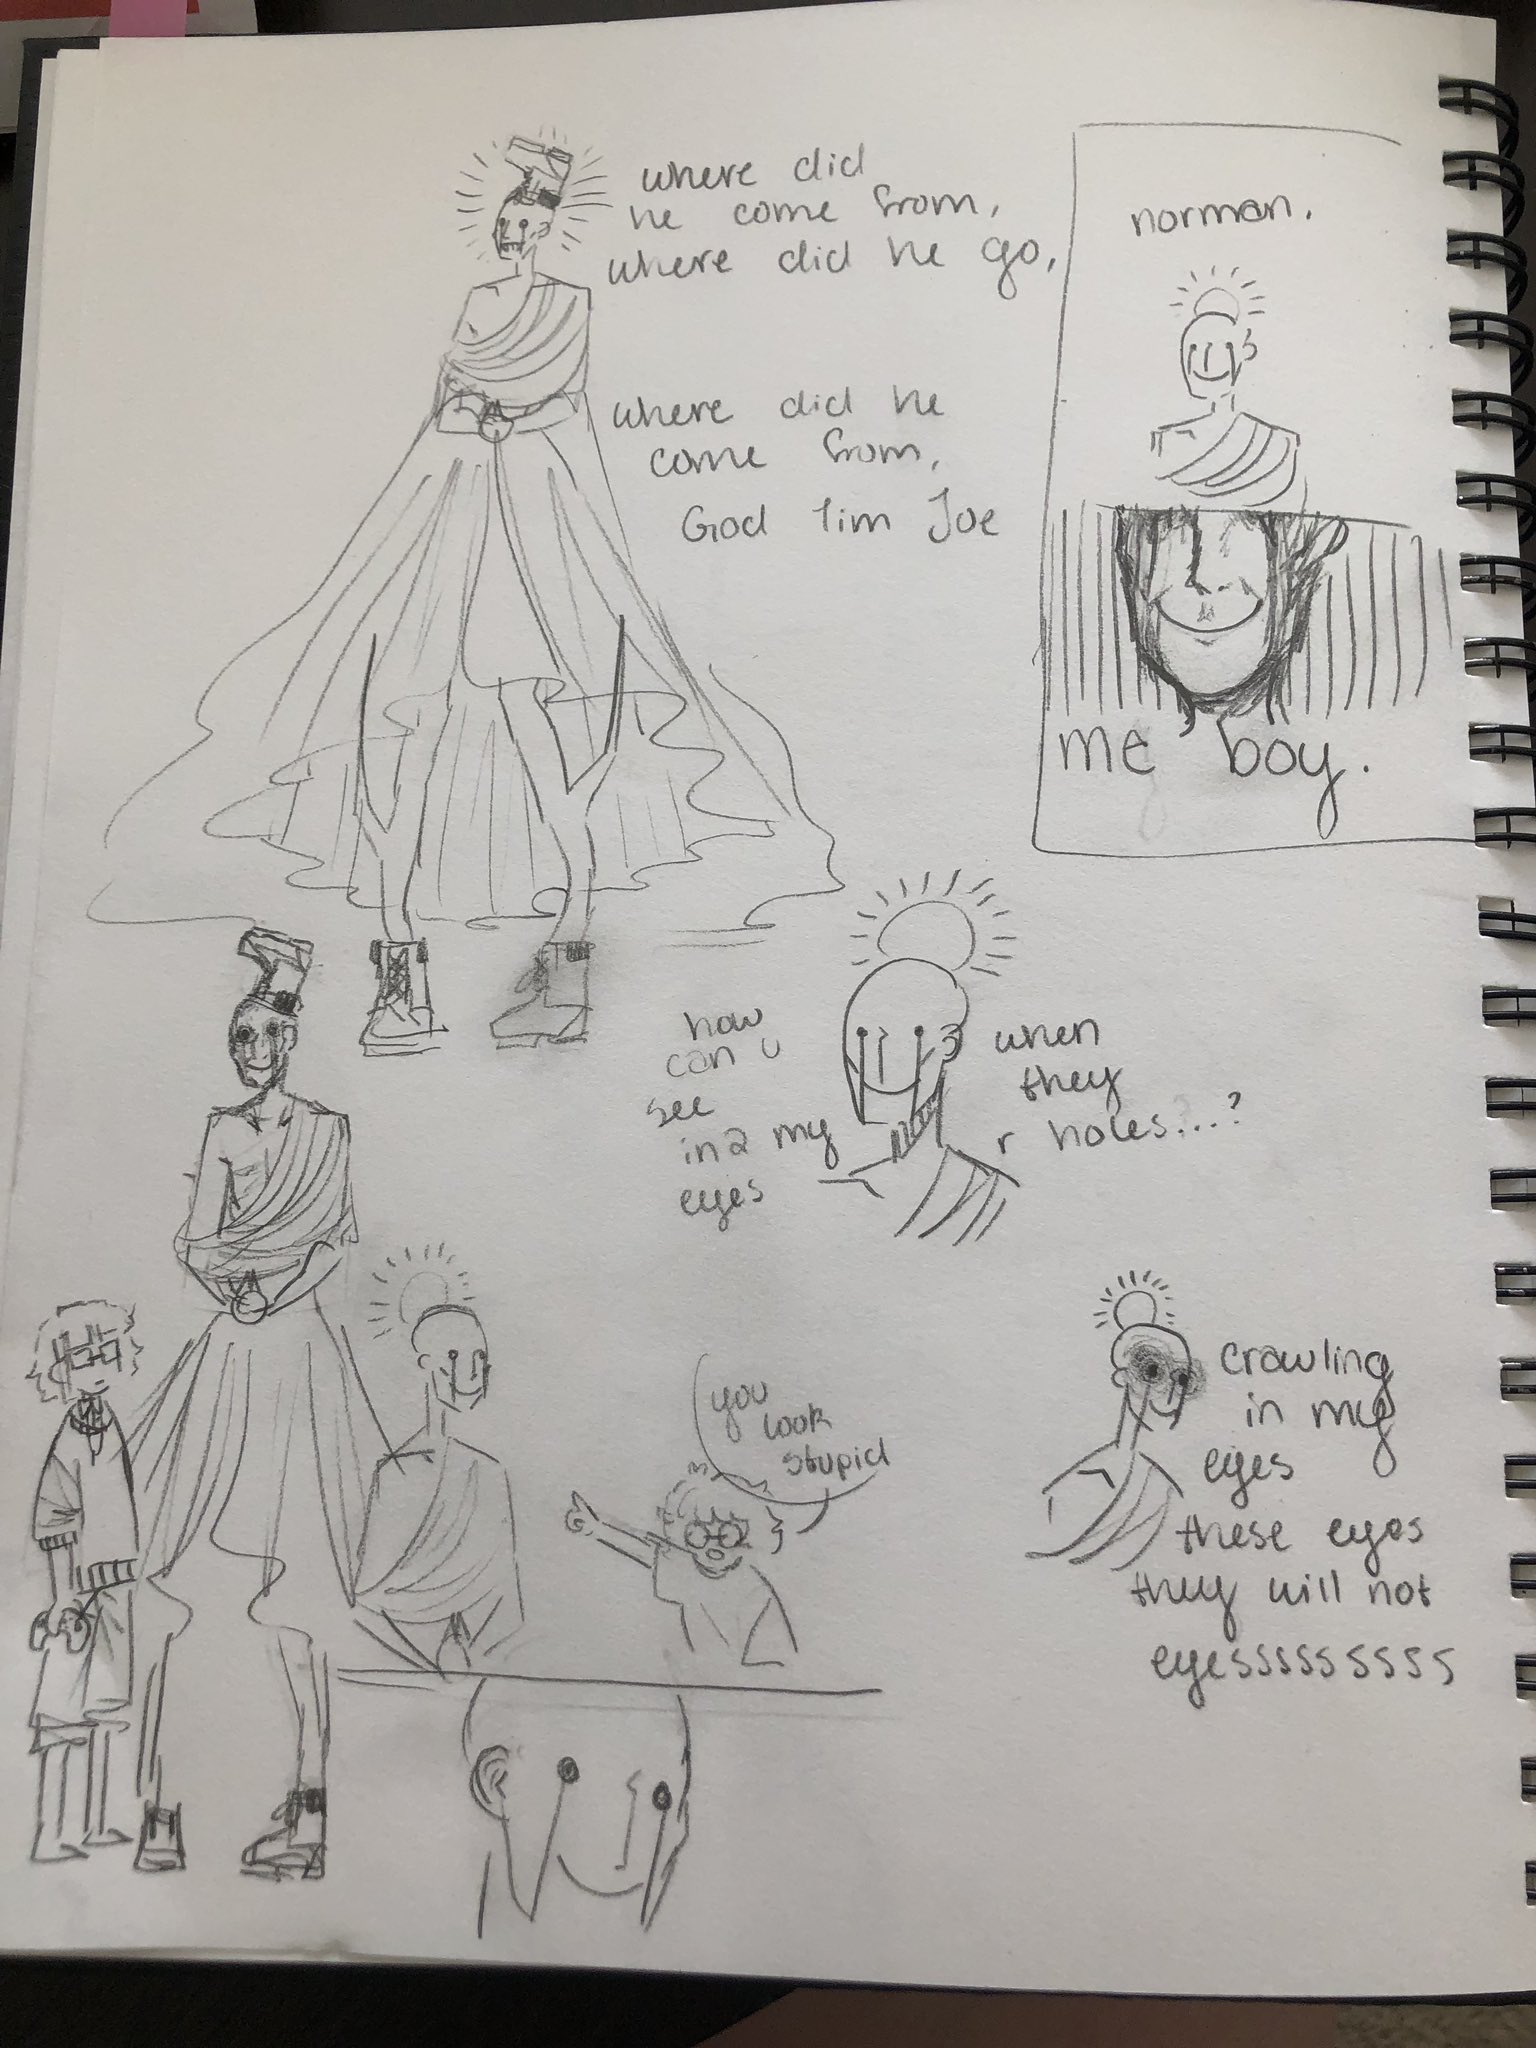 where did
he come from,
where did he go,
where did he
come from,
God Tim Joe
norman.
me' boy.
how
can u
see
in2 my
eyes
when
they
r holes....?
you
look
stupid
crawling
in my
eyes
these eyes
they will not
eyesssssssss